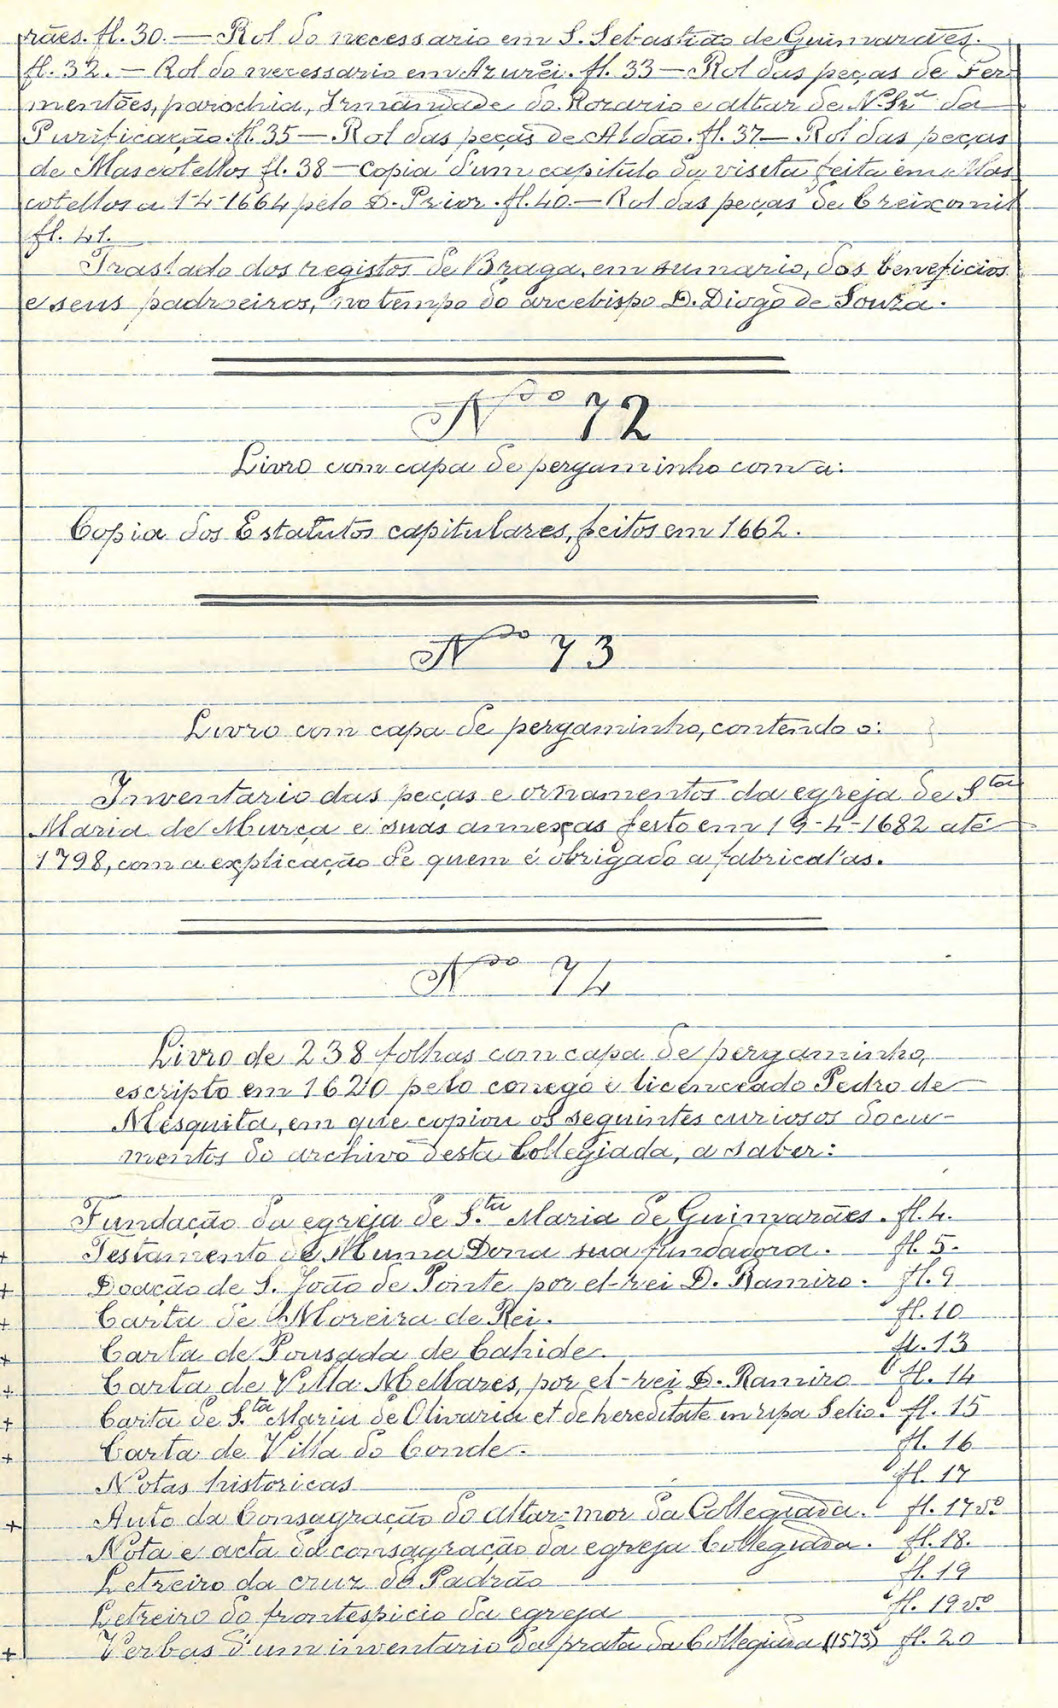 rães. fl. 30. — Rol do necessario em S. Sebastião de Guimarães.
fl. 32. — Rol do necessario em Azurêi. fl. 33 — Rol das peças de Fer-
mentões, parochia, Irmandade do Rozario e altar de N. Srª da
Purificação. fl. 35 — Rol das peças de Aldão. fl. 37 — Rol das peças
de Mascotellos fl. 38 — Copia d'um capitulo da visita feita em Mas
cotellos a 1-4-1664 pelo D. Prior. fl. 40. — Rol das peças de Creixomil
fl. 41.
Traslado dos registos de Braga, em sumario, dos beneficios
e seus padroeiros, no tempo do arcebispo D. Diogo de Souza.
Nº 72
Livro com capa de pergaminho com a:
Copia dos Estatutos capitulares, feitos em 1662.
Nº 73
Livro com capa de pergaminho, contendo o:
Inventario das peças e ornamentos da egreja de Stª
Maria de Murça e suas annexas feito em 19-4-1682 até
1798, com a explicação de quem é obrigado a fabrical'as.
Nº 74
Livro de 238 folhas com capa de pergaminho,
escripto em 1620 pelo conego e licenceado Pedro de
Mesquita, em que copiou os seguintes curiosos docu-
mentos do archivo desta Collegiada, a saber:
Fundação da egreja de S.ta Maria de Guimarães. fl. 4.
+ Testamento de Muma Dona sua fundadora. fl. 5.
+ Doação de S. João de Ponte por el-rei D. Ramiro. fl. 9
+ Carta de Moreira de Rei. fl. 10
+ Carta de Pousada de Cahide. fl. 13
+ Carta de Villa Mellares, por el-rei D. Ramiro fl. 14
+ Carta de S.ta Maria de Olivaria et de hereditate in ripa Selio. fl. 15
+ Carta de Villa do Conde. fl. 16
Notas historicas fl. 17
+ Auto da Consagração do altar-mor da Collegiada. fl. 17 vº
Nota e acta da consagração da egreja Collegiada. fl. 18.
Letreiro da cruz do Padrão fl. 19
Letreiro do frontespicio da egreja fl. 19 vº
+ Verbas d'um inventario da prata da Collegiada (1573) fl. 20